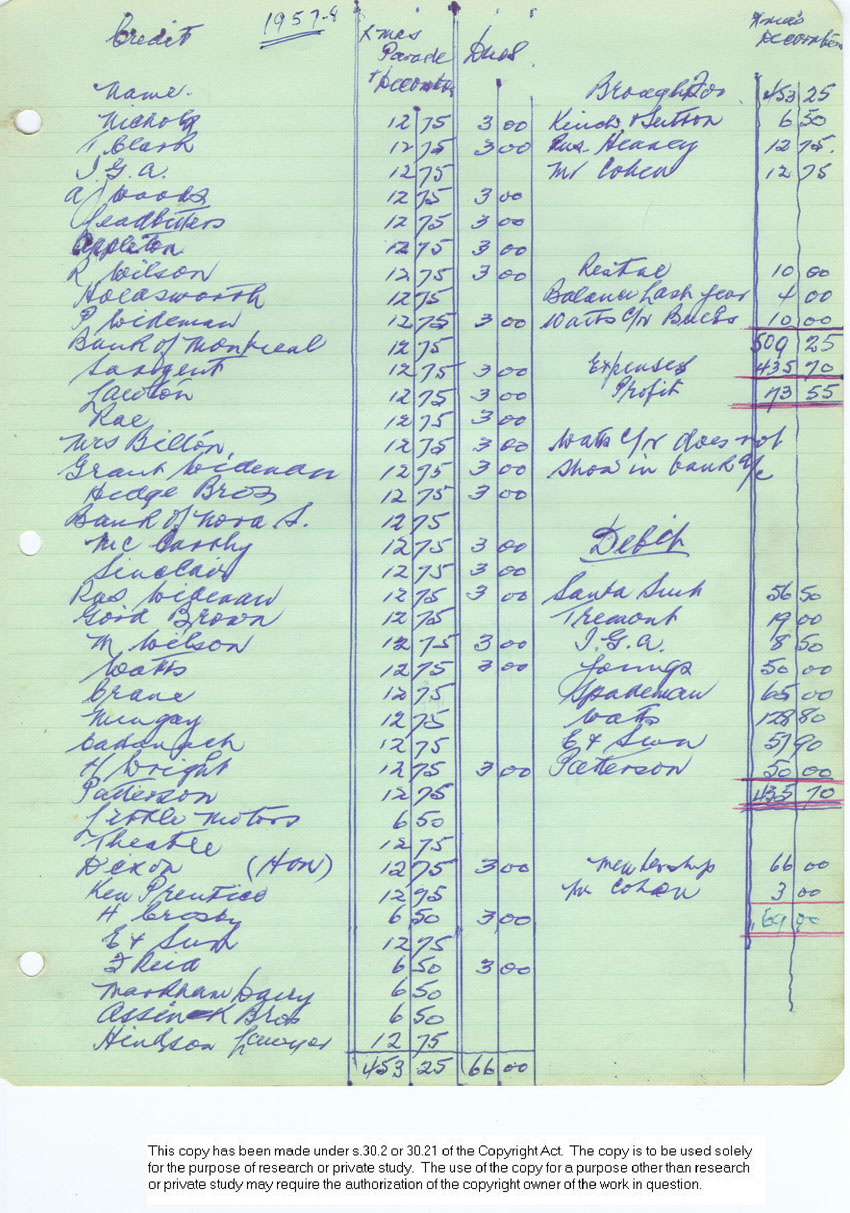 Credit 1957-8 Xmas Parade + December Dues
Name.
Nichols 12 75 3 00
Clark 12 75 3 00
I.G.A. 12 75
A Woods 12 75 3 00
Leadbitters 12 75 3 00
Appleton 12 75 3 00
R Wilson 12 75 3 00
Holdsworth 12 75
P Wideman 12 75 3 00
Bank of Montreal 12 75
Sargent 12 75 3 00
Lawton 12 75 3 00
Rae 12 75 3 00
Mrs Bilton 12 75 3 00
Grant Wideman 12 75 3 00
Hedge Bros 12 75 3 00
Bank of Nova S. 12 75
McCarthy 12 75 3 00
Sinclair 12 75 3 00
Russ Wideman 12 75 3 00
Good Brown 12 75
M Wilson 12 75 3 00
Watts 12 75 3 00
Crane 12 75
Mungay 12 75
12 75
H Wright 12 75 3 00
Patterson 12 75
Little Motors 6 50
Theatre 12 75
Dixon (Hon) 12 75 3 00
Ken Prentice 12 75
H Crosby 6 50 3 00
E & Sun 12 75
Reid 6 50 3 00
Markham Dairy 6 50
Assinck Bros 6 50
Hindson Lawyer 12 75
453 25 66 00
Xmas December
Brought For 453 25
Kinch & Sutton 6 50
Rus. Heaney 12 75.
Mr Cohen 12 75
Rental 10 00
Balance Last year 4 00
Watts C/N Bulbs 10 00
509 25
Expenses 435 70
Profit 73 55
Watts C/N does not
show in bank a/c
Debit
Santa Suit 56 50
Tremont 19 00
I.G.A. 8 50
Youngs 50 00
Spademan 65 00
Watts 128 80
E & Sun 57 90
Patterson 50 00
435 70
Membership 66 00
Mr Cohen 3 00
69 00
This copy has been made under s.30.2 or 30.21 of the Copyright Act. The copy is to be used solely
for the purpose of research or private study. The use of the copy for a purpose other than research
or private study may require the authorization of the copyright owner of the work in question.